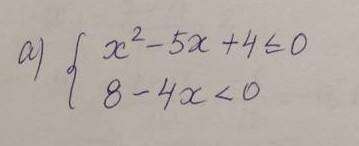 а) { x² - 5x + 4 ≤ 0
8 - 4x < 0